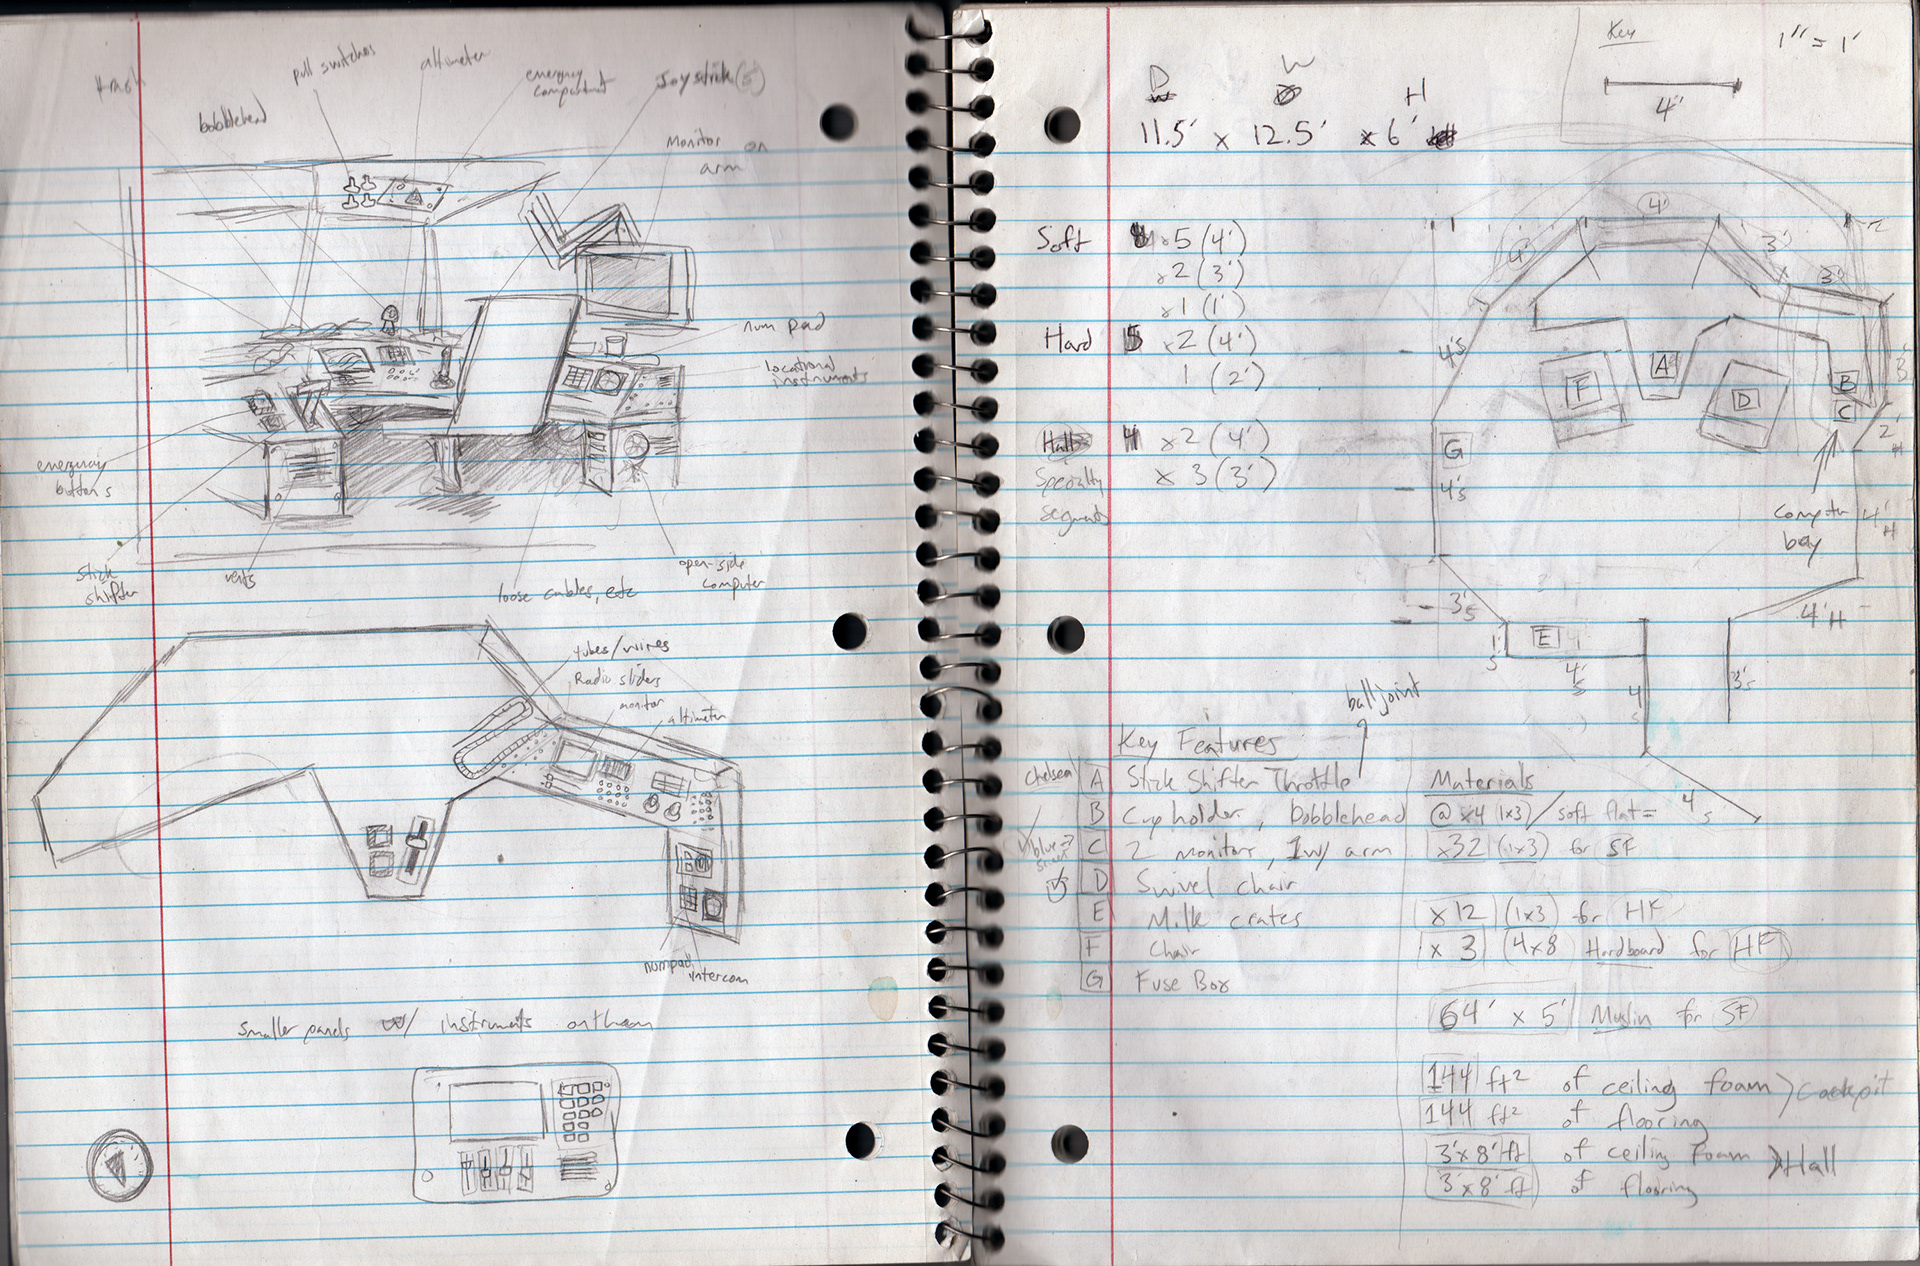 pull switches
altimeter
emergency
compartment
Joystick(s)
bobblehead
monitor on
arm
num pad
locational
instruments
emergency
buttons
stick
shifter
vents
loose cables, etc
open-side
computer
tubes/wires
Radio sliders
monitor
altimeter
numpad
intercom
smaller panels w/ instruments on them
Key
1" = 1'
4"
D W H
11.5' x 12.5' x 6'
Soft x5 (4')
x2 (3')
x1 (1')
Hard 5 x2 (4')
1 (2')
4 x2 (4')
Specialty x 3 (3')
segments
4'
4'
3'
3'
4's
A
F
D
B
C
2'
H
G
4's
computer
bay
4'
H
3's
4'H
1'
S
E
4'
S
4
S
3's
4
S
ball joint
Key Features
Chelsea
A Stick Shifter Throttle
B Cup holder, bobblehead
C 2 monitors, 1 w/ arm
D Swivel chair
E Milk crates
F Chair
G Fuse Box
Materials
@ x4 (1x3) / soft flat =
x32 (1x3) for SF
x12 (1x3) for HF
x 3 (4x8 Hardboard for HF
64' x 5' Muslin for SF
144 ft² of ceiling foam > Cockpit
144 ft² of flooring
3' x 8' ft of ceiling foam > Hall
3' x 8' ft of flooring